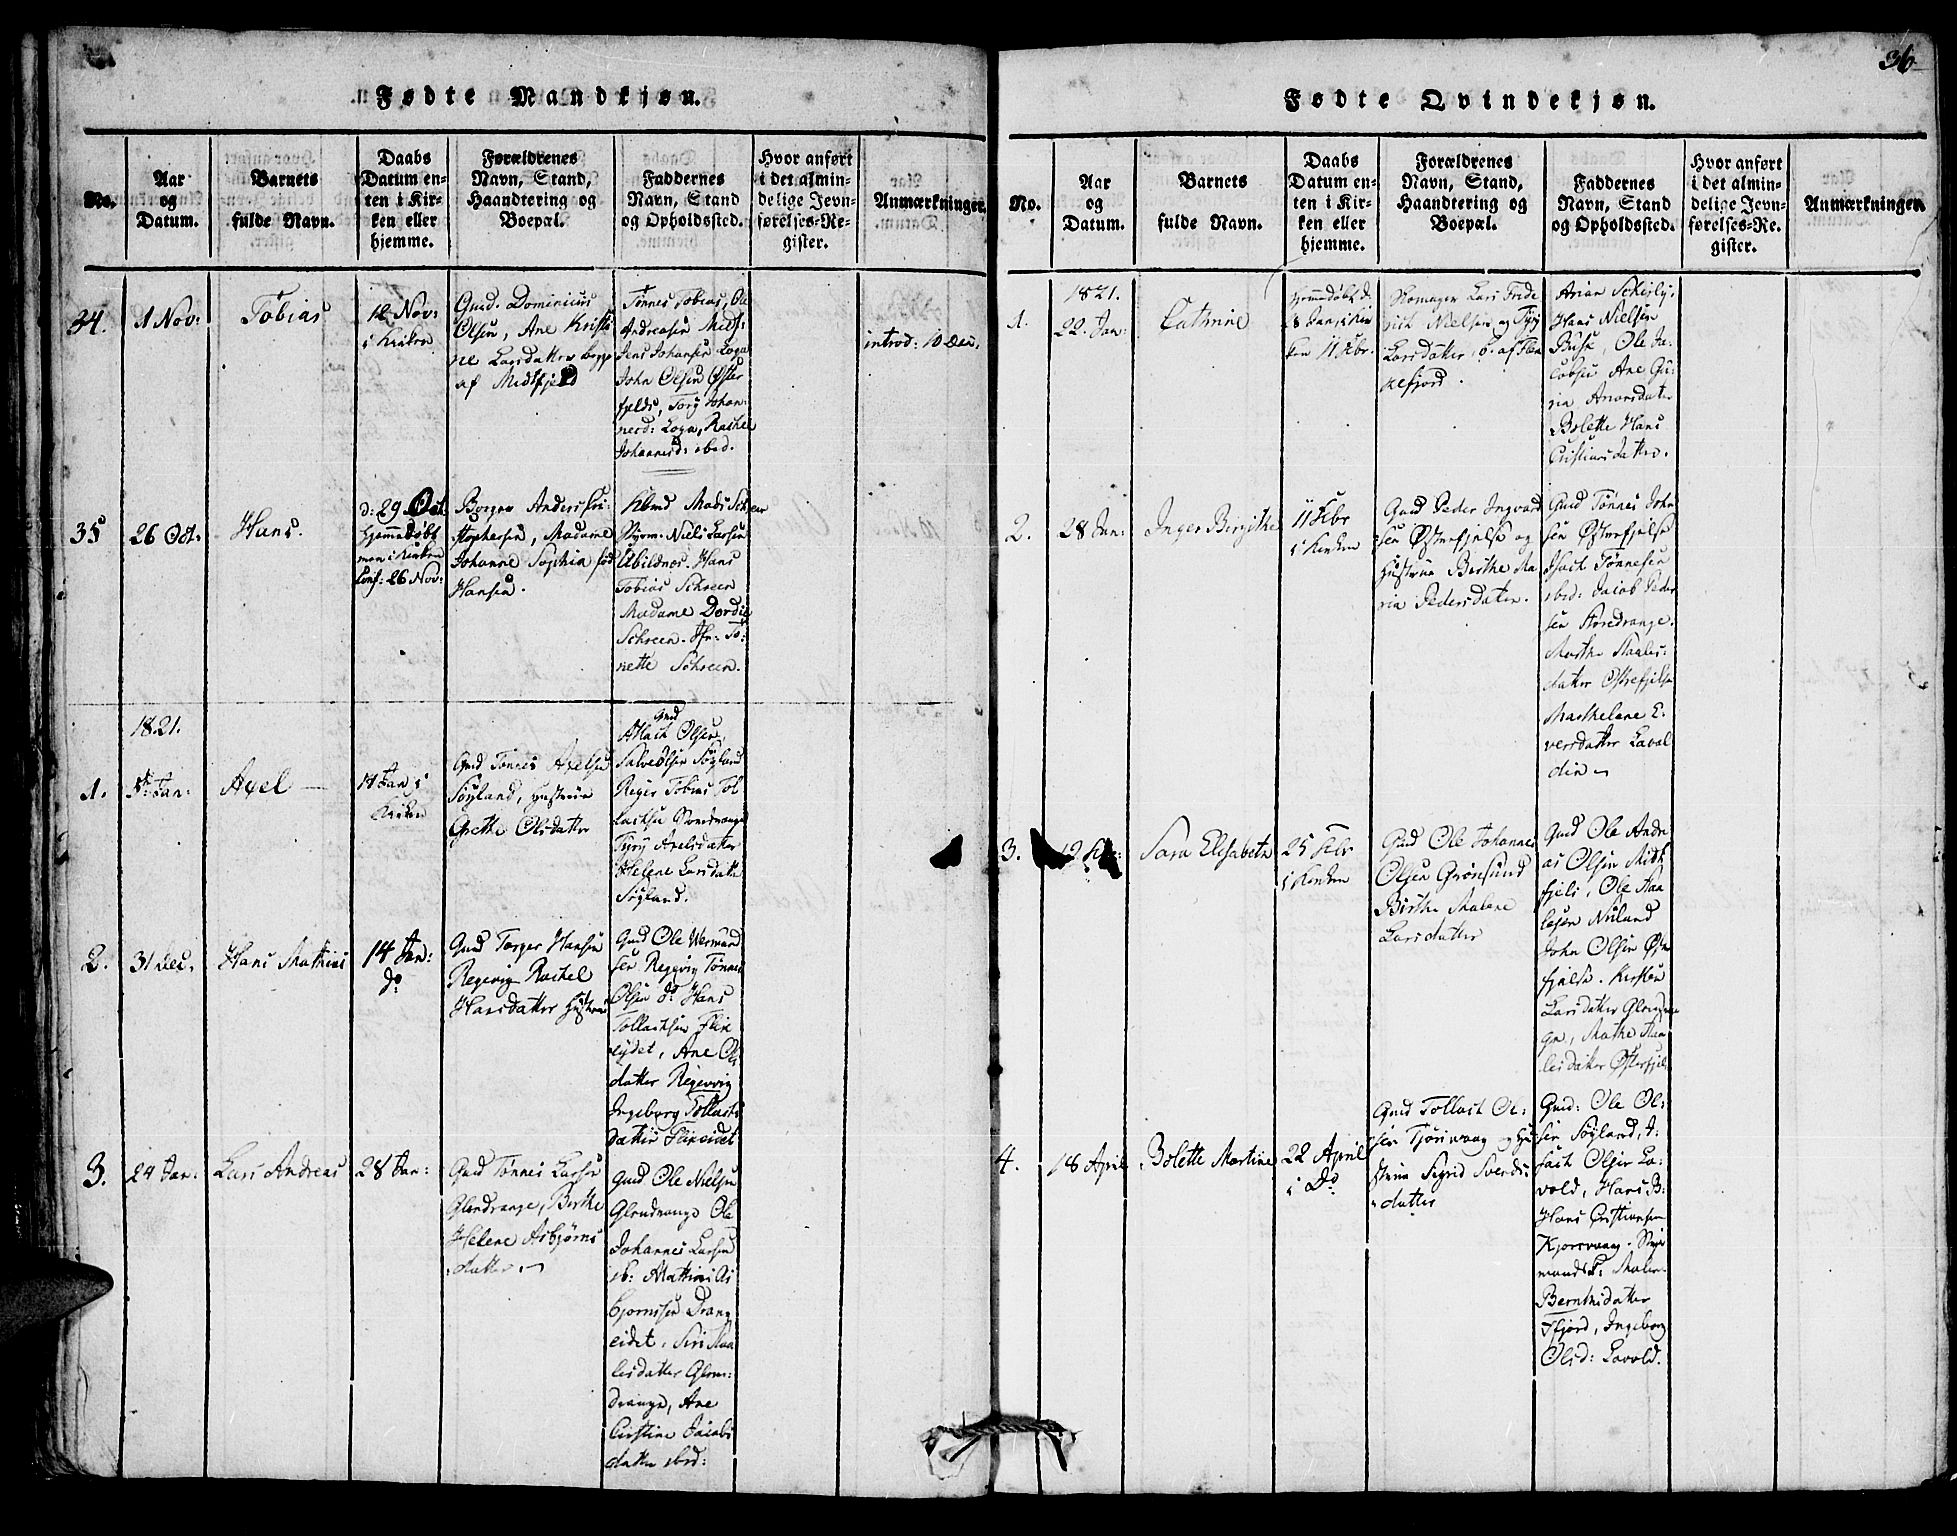 36
Fødte Mandkjøn.
No.
Aar
og
Datum.
Barnets
fulde Navn.
Daabs
Datum en-
ten i Kir-
ken eller
hjemme.
Forældrenes
Navn, Stand,
Haandtering og
Boepæl.
Faddernes
Navn, Stand
og Opholdssted.
Hvor anført
i det almin-
delige Jevn-
førelses-Re-
gister.
Anmærkninger.
34.
1 Nov:
Tobias
12 Nov:
i Kirken
Gmd. Dominicus
Olsen, Ane Kristi
ne Larsdatter begge
af Midtfjeld
Tønnes Tobias, Ole
Andreasen Midf:
Jens Johansen Loga
John Olsen Øster
fjelds, Tory Johan-
nesd: Loga, Rachel
Johannesd: ibed.
introd: 10 Dec.
35
26 Oct.
Hans.
d: 29 Oct
Hjemmedøbt
men i Kirken
Conf: 26 Nov:
Borger Anders Chri-
stophersen, Madame
Johanne Sophia fød
Hansen.
Mads Schreen
Styrm: Niels Larsen
Abildnes. Hans
Tobias Schreen
Madame Dordie
Schreen. Jfr: To-
nette Schreen.
1821.
1.
5 Jan:
Axel —
14 Jan i
Kirken
Gmd Tønnes Axelsen
Søyland, Hustrue
Grethe Olsdatter
Gmd
Aslach Olsen,
Salve Olsen Søyland
Reger Tobias Tol
lachsen
Tyry Axelsdatter
Helene Larsdatter
Søyland.
2.
31 Dec.
Hans Mathias
14 Jan:
Do
Gmd Torger Hansen
Regevig Rachel
Hansdatter Hustrue
Gmd Ole Wermund
sen Regevig Tønnes
Olsen do Hans
Tollachsen Flix
eydet, Ane Ols
datter Regevig
Ingeborg Tollachs
datter Flixeidet
3.
24 Jan:
Lars Andreas
28 Jan:
Gmd Tønnes Larsen
Glendrange, Berthe
Helene Asbjørns
datter. —
Gmd Ole Nielsen
Glendrange Ole
Johannes Larsen
ib: Mathias As
bjørnsen Drang
eidet, Siri Staa
lesdatter Glen-
drange, Ane
Cirstine Jacobs
datter ibed:
Fødte Qvindekjøn.
No.
Aar
og
Datum.
Barnets
fulde Navn.
Daabs
Datum en-
ten i Kir-
ken eller
hjemme.
Forældrenes
Navn, Stand,
Haandtering og
Boepæl.
Faddernes
Navn, Stand
og Opholdssted.
Hvor anført
i det almin-
delige Jevn-
førelses-Re-
gister.
Anmærkninger.
1821.
1.
22 Jan:
Cathrine
Hjemmedøbt d.
28 Jan, i Kir
ken 11 Febr.
Skomager Lars Frede
rich Nielsen og Tyri
Larsdatter, b. af Flek
kefjord.
Arian Schesly,
Hans Nielsen
Busk, Ole Ja-
cobsen Ane Gu-
ria Anorsdatter
Bolette Hans
Cristiansdatter.
2.
28 Jan:
Inger Birgithe
11 Febr
i Kirken
Gmd Peder Ingvard
sen Østerfjelse og
Hustrue Birthe Ma
ria Pedersdatter.
Gmd Tønnes John
sen Østerfjelse
Isach Tønnesen
ibed: Jacob Peder
sen Storedrange.
Marthe Staales-
datter Østrefjelse
Marthelene E-
versdatter Laval
dien —
3.
19 Febr:
Sara Elisabeth
25 Febr
i Kirken
Gmd Ole Johannes
Olsen Grønsund
Birthe Malene
Larsdatter
Gmd Ole Andre
as Olsen Midt
fjels, Ole Staa
lesen Nuland
John Olsen Øst
fjelse. Kirsten
Larsdatter Glendran
ge, Marthe Staa
lesdatter Østerfjels
4.
18 April
Bolette Martine
22 April
i Do
Gmd Tollach Ol-
sen Tjørsvaag og Hu
strue Sigrid Svends
datter
Gmd: Ole Ol-
sen Søyland, A-
slach Olsen La-
vold, Hans B:
Hans Cristiansen
Kjorsvaag. Styr
mands F: Malene
Berntsdatter
Ffjord, Ingeborg
Olsd: Lovold.